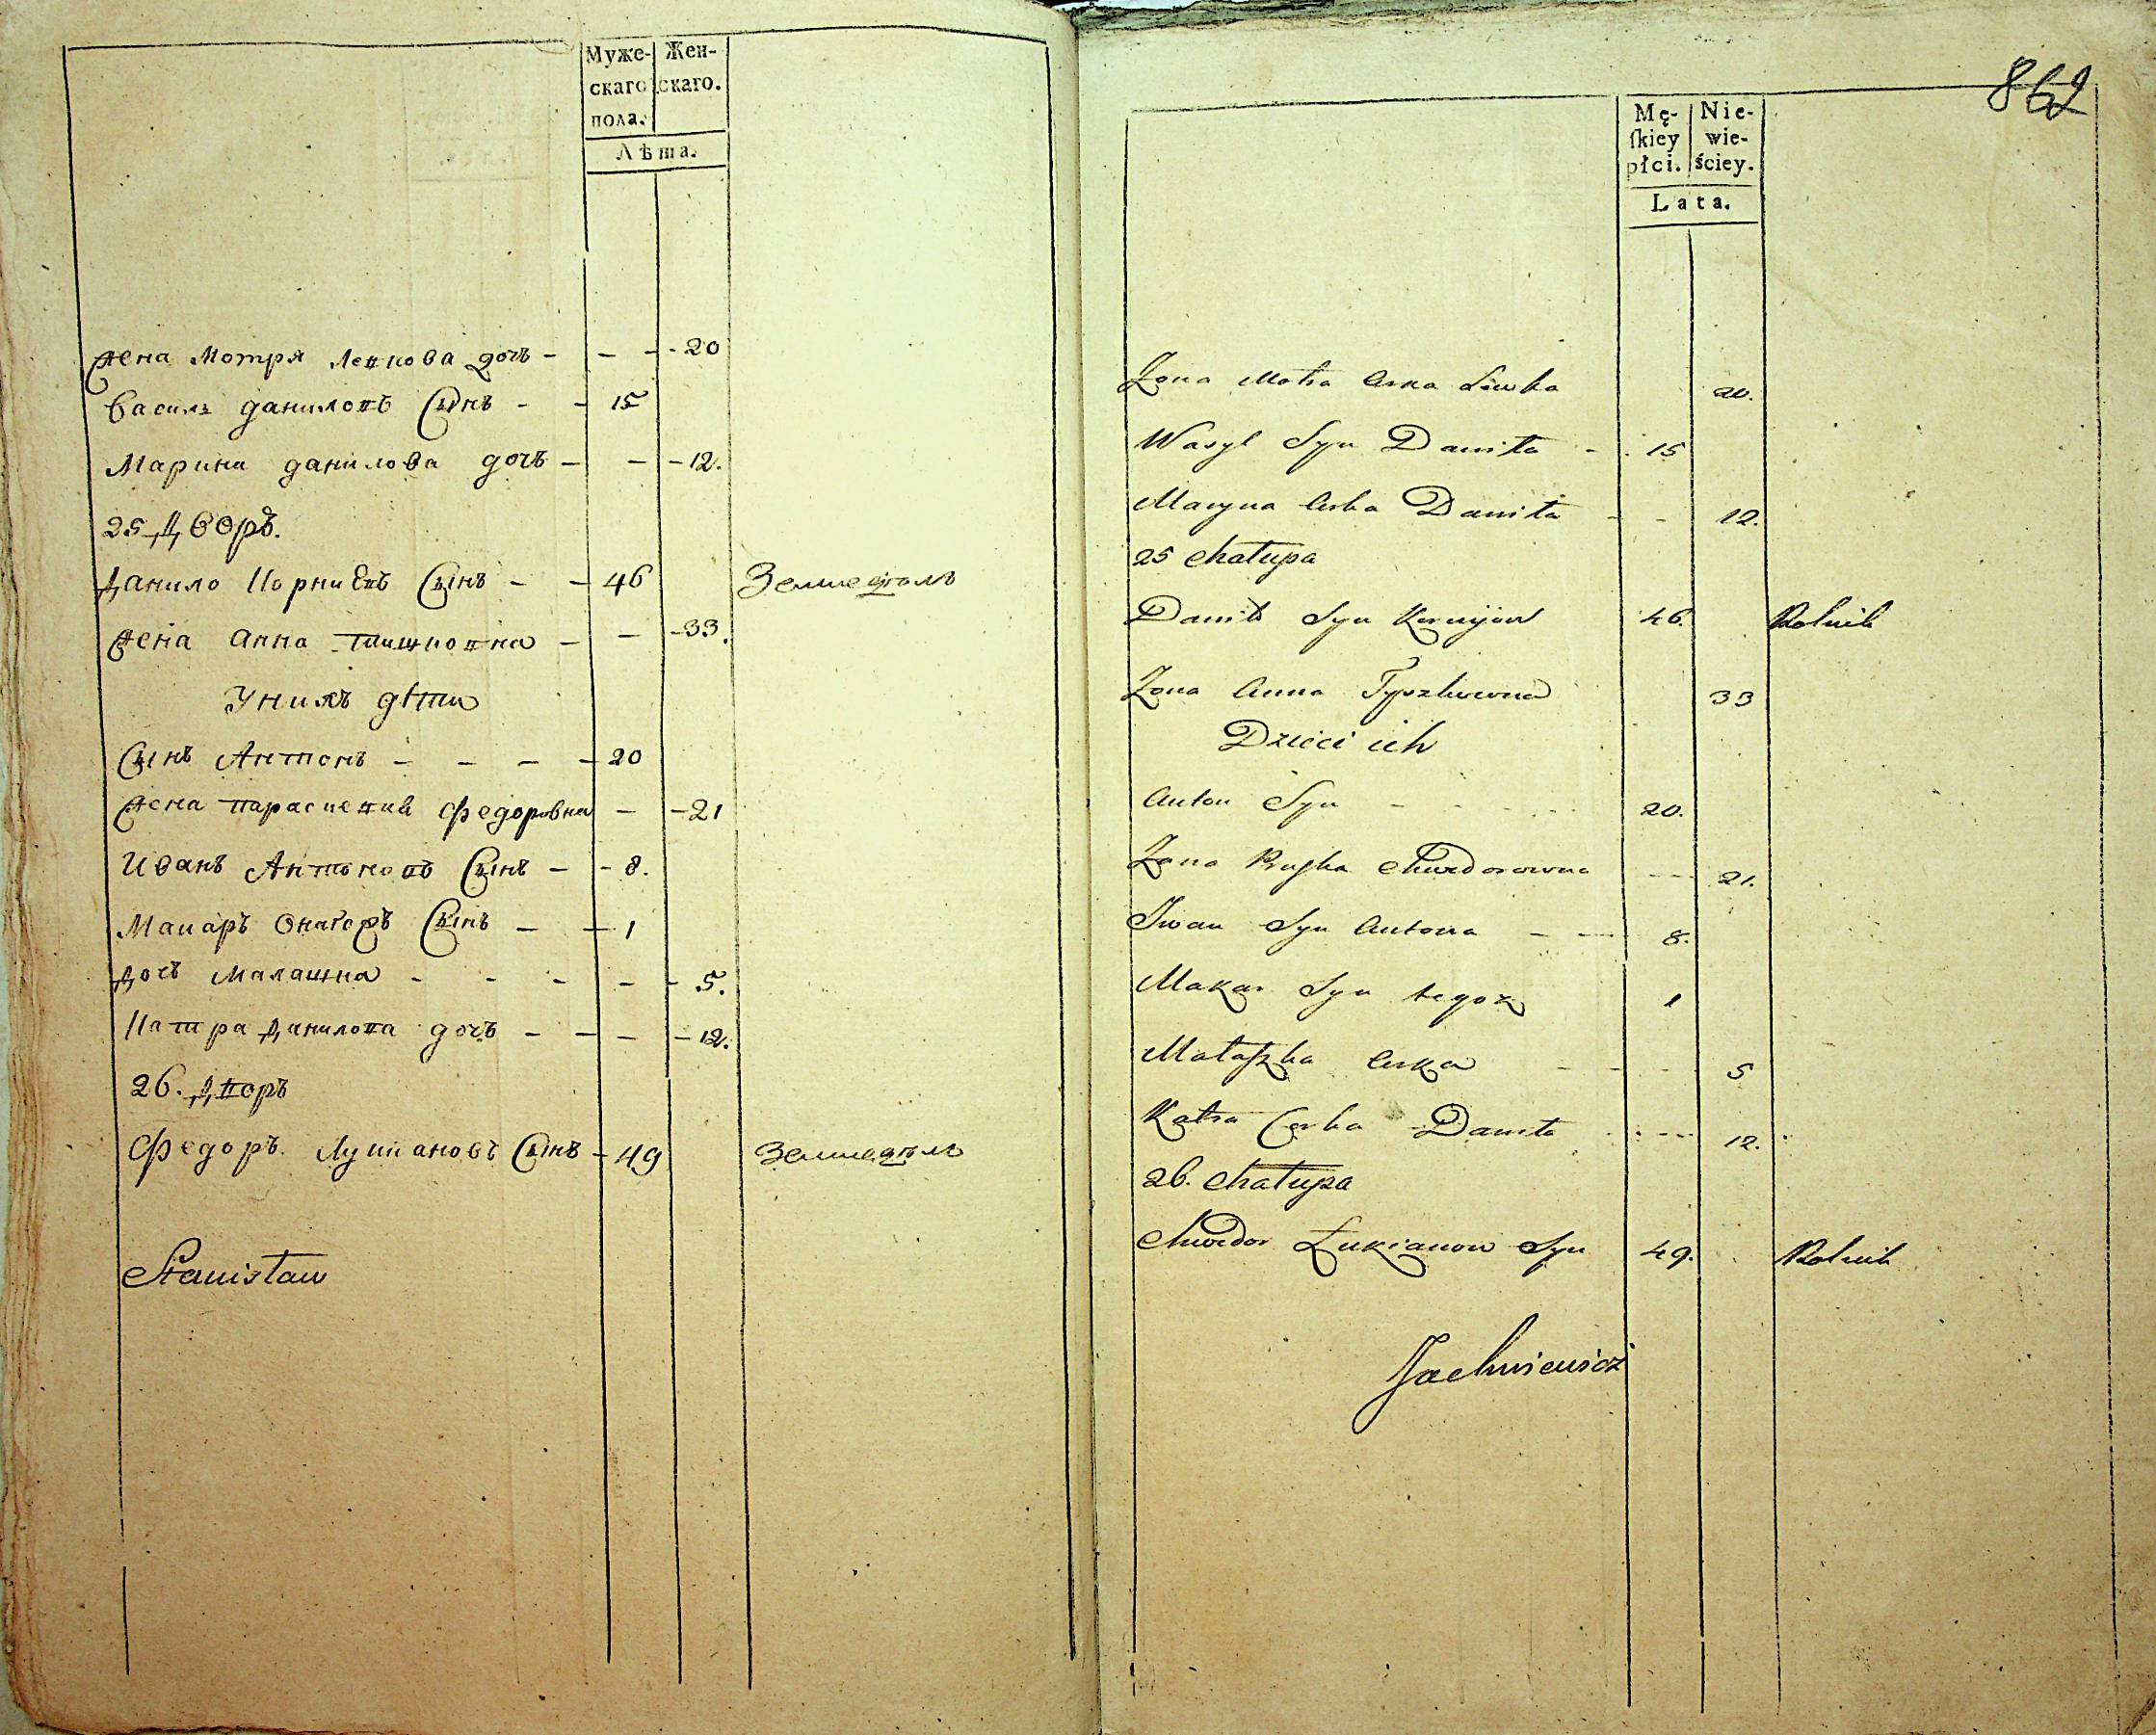 Муже-
скаго
пола.
Жен-
скаго.
Лѣта.
Жена Мотря Левкова дочь - - - - 20
Василь даниловъ Сынъ - - 15
Марина данилова дочь - - - 12.
25 Дворъ.
Данило Корниевъ Сынъ - - 46 Земледѣлъ
Жена Анна тишковна - - - 33.
У нихъ дѣти
Сынъ Антонъ - - - - 20
Жена параскевия Федоровна - - 21
Иванъ Антоновъ Сынъ - - 8.
Макаръ Онагожъ Сынъ - - 1
Дочь Малашка - - - - - 5.
Катра Данилова дочь - - - - 12.
26. Дворъ
Федоръ. Лукіановъ Сынъ - 49 Земледѣлъ
Stanisław
862
Mę-
ſkiey
płci.
Nie-
wie-
ściey.
Lata.
Zona Motra Corka Lewka 20.
Wasyl Syn Daniła - . 15
Maryna Corka Daniła - - 12.
25 Chałupa
Daniło Syn Kornijow 46. Rolnik
Zona Anna Tyszkowna 33
Dzieci ich
Anton Syn - - - - 20.
Zona Chwedorowna --- 21.
Iwan Syn Antona - -- 8.
Makar Syn tegoż 1
Małaszka Corka - - - 5
Katra Corka Daniła - --- 12.
26. Chałupa
Chwedor Łukianow Syn 49. Rolnik
Jachniewicz